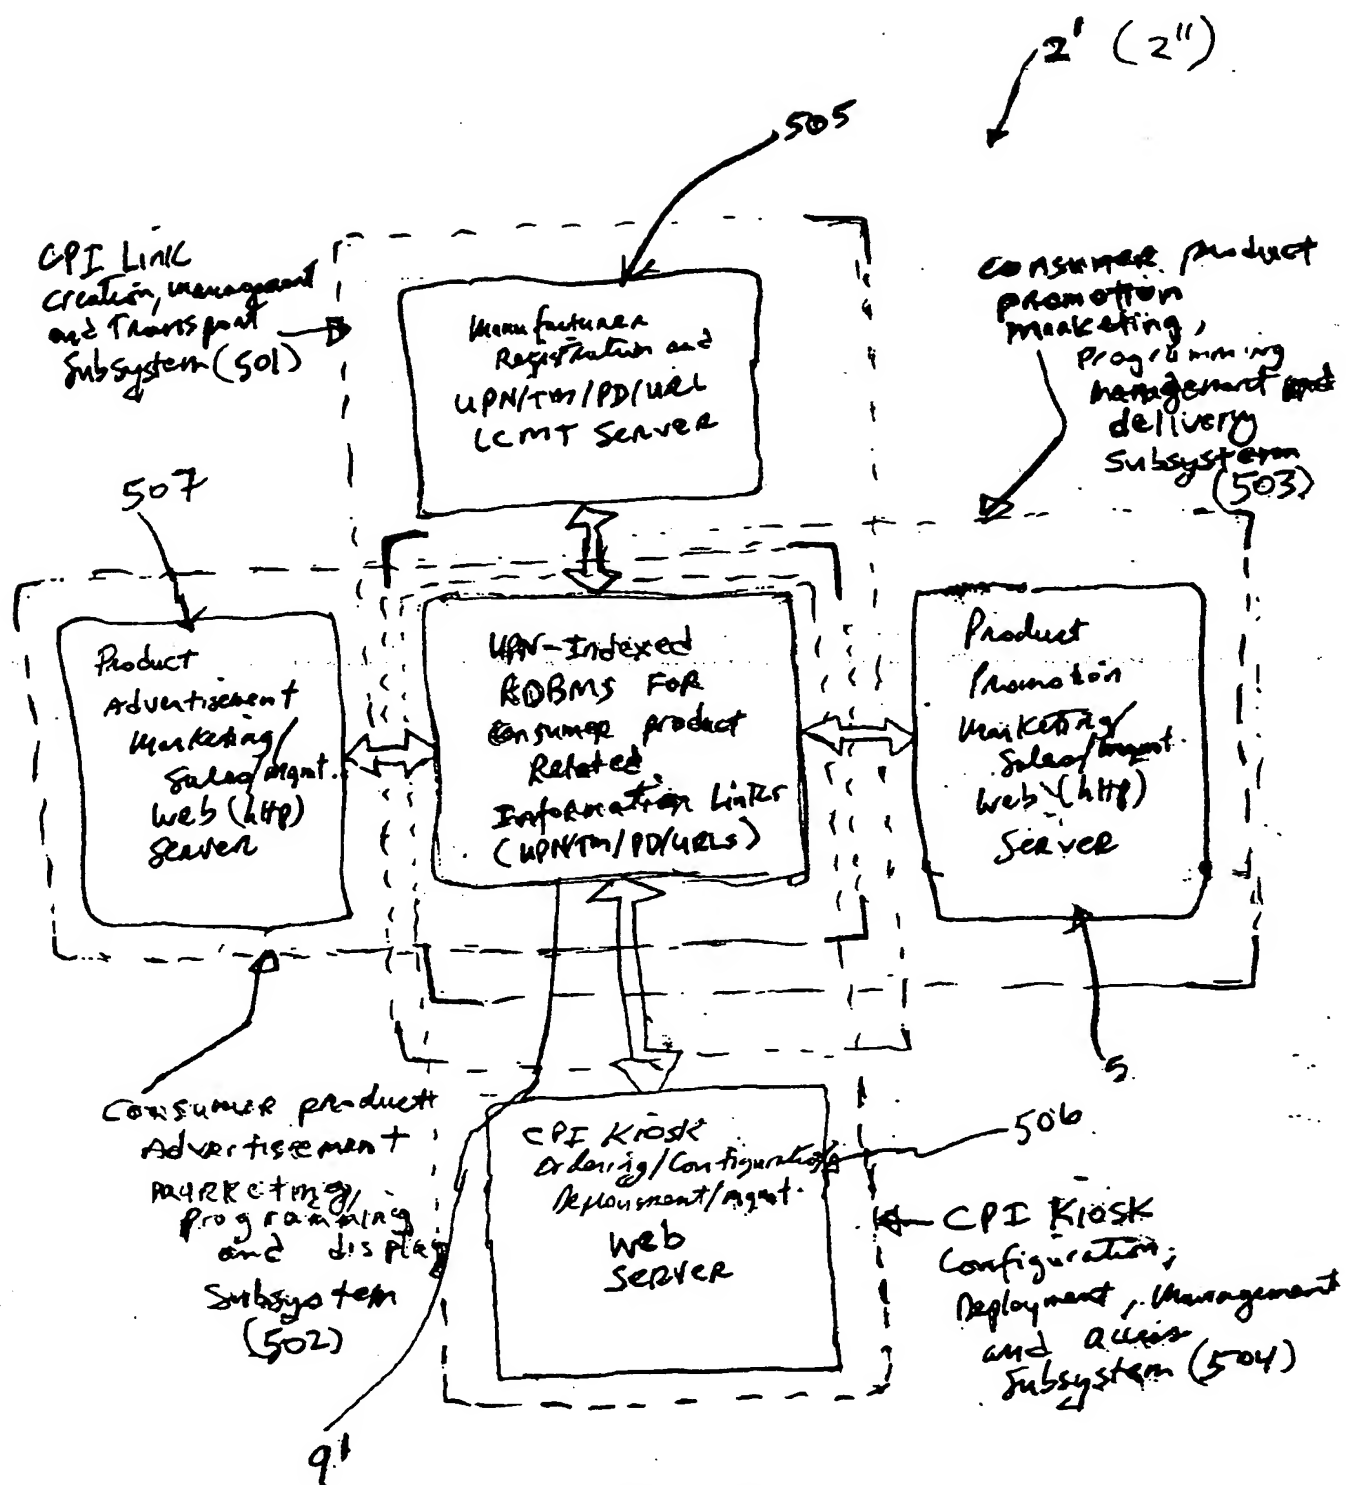 2' (2'')
505
CPI Link
Creation, management
and Transport
Subsystem (501)
Manufacturer
Registration and
UPN/TM/PD/URL
LCMT SERVER
Consumer product
promotion
Marketing,
Programming
management and
delivery
Subsystem
(503)
507
Product
Advertisement
Marketing/
Sales/mgmt.
Web (http)
Server
UPN-Indexed
RDBMS FOR
Consumer product
Related
Information Links
(UPN/TM/PD/URLs)
Product
Promotion
Marketing/
Sales/mgmt.
Web (http)
Server
5
Consumer product
Advertisement
Marketing,
programming
and display
Subsystem
(502)
CPI Kiosk
Ordering/Configuration
Deployment/mgmt.
Web
SERVER
506
CPI Kiosk
Configuration,
Deployment, Management
and access
Subsystem (504)
9'